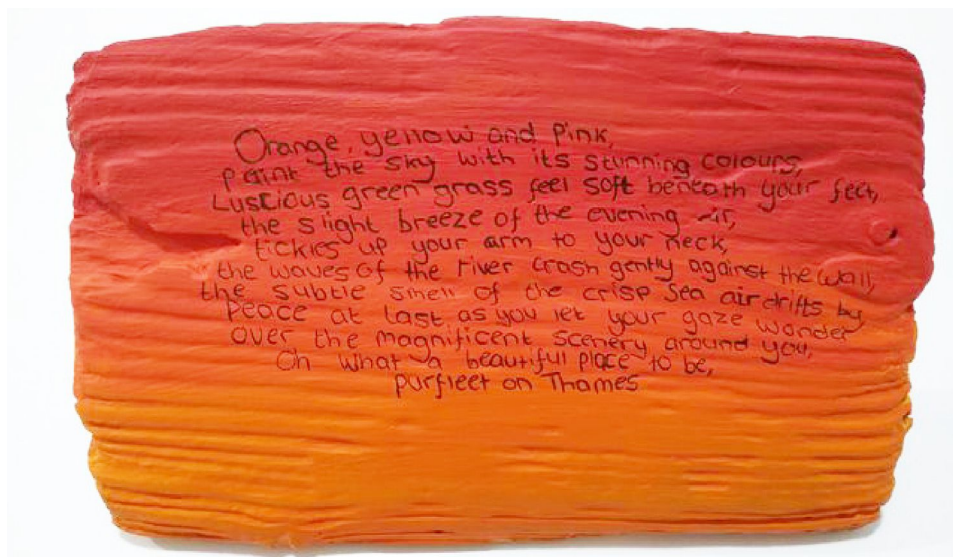 Orange, yellow and pink,
paint the sky with its stunning colours,
Luscious green grass feel soft beneath your feet,
the slight breeze of the evening air,
tickles up your arm to your neck,
the waves of the river crash gently against the wall,
the subtle smell of the crisp sea air drifts by
Peace at last as you let your gaze wonder
over the magnificent scenery around you,
Oh what a beautiful place to be,
purfleet on Thames